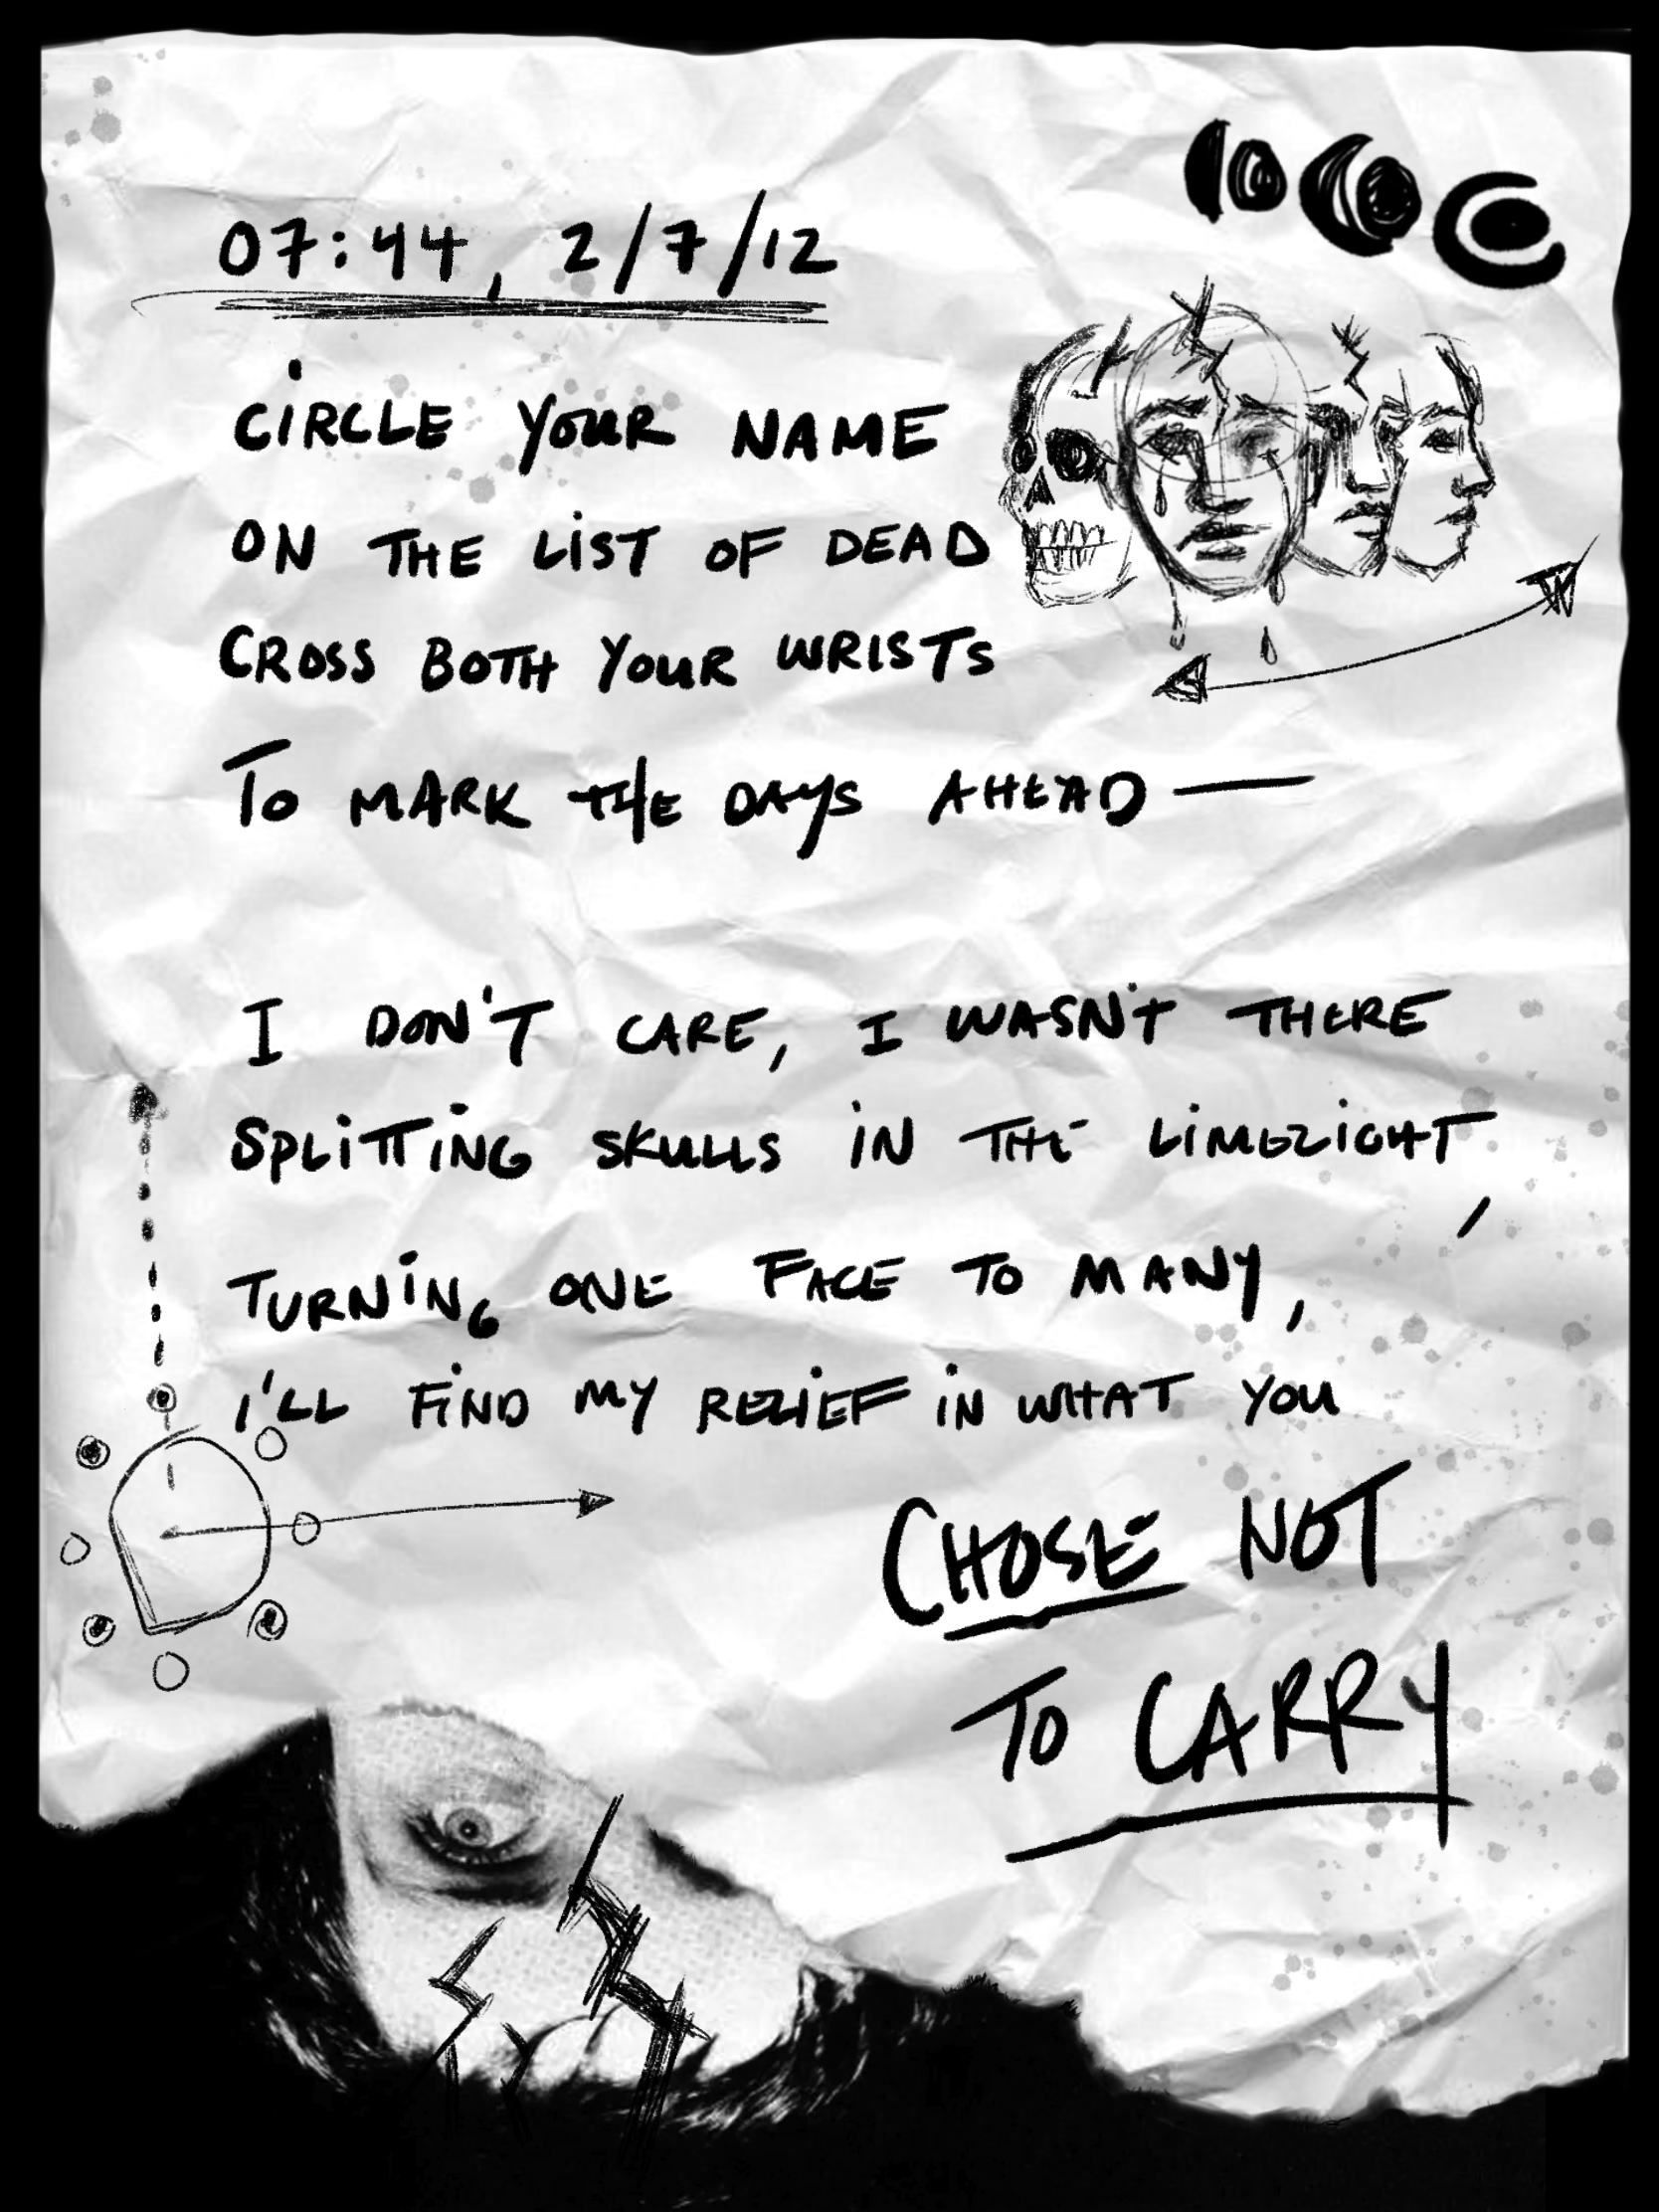 07:44, 2/7/12
CIRCLE YOUR NAME
ON THE LIST OF DEAD
CROSS BOTH YOUR WRISTS
TO MARK THE DAYS AHEAD —
I DON'T CARE, I WASN'T THERE
SPLITTING SKULLS IN THE LIMELIGHT,
TURNING ONE FACE TO MANY,
I'LL FIND MY RELIEF IN WHAT YOU
CHOSE NOT
TO CARRY